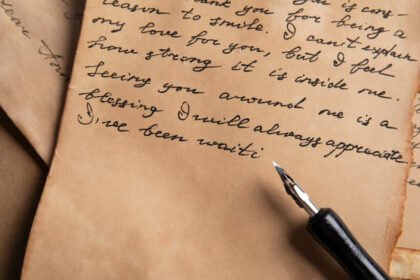 Thank you for being a
reason to smile. I can't explain
my love for you, but I feel
how strong it is inside me.
Seeing you around me is a
blessing I will always appreciate.
I've been waiti
dear